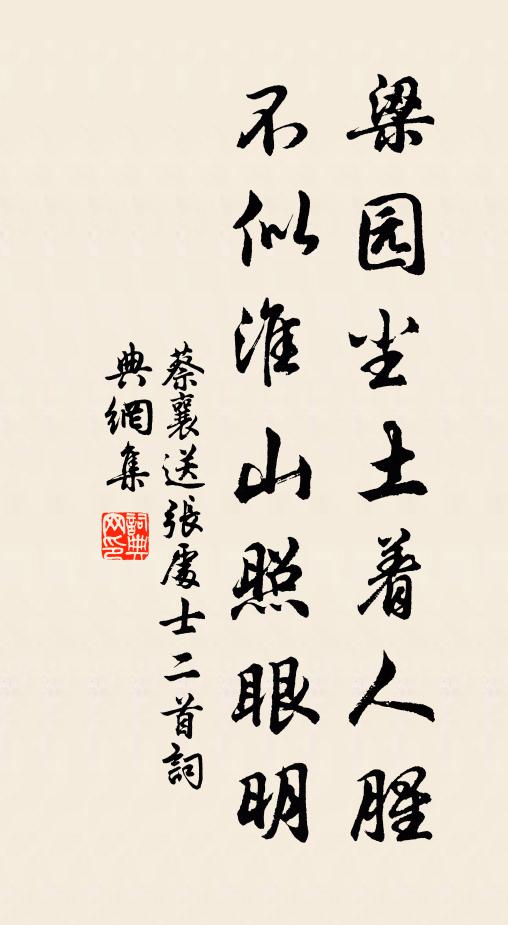 梁园尘土着人腥
不似淮山照眼明
蔡襄送張處士二首詞
典網集
詞典網印